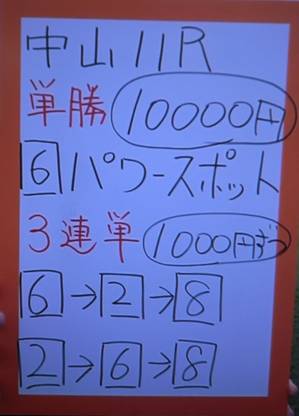 中山11R
単勝 10000円
6 パワースポット
3連単 1000円ずつ
6→2→8
2→6→8